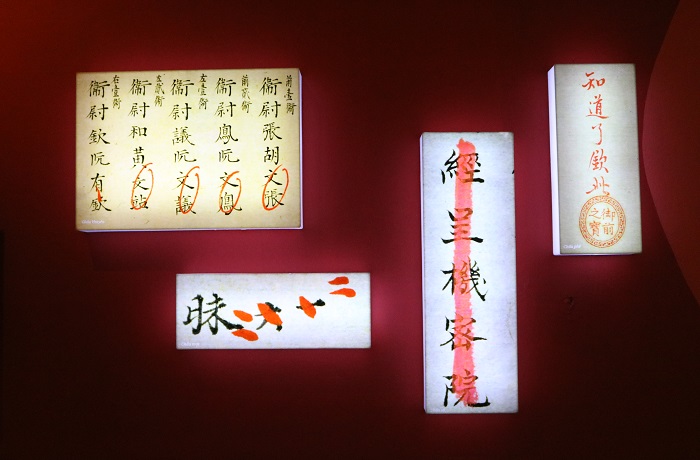 前壹衛
衛尉張胡文張
前貳衛
衛尉鳳阮文鳳
左壹衛
衛尉議阮文議
左貳衛
衛尉和黃文
右壹衛
衛尉欽阮有欽
知道了欽此
御前之寶
經呈機密院
昧